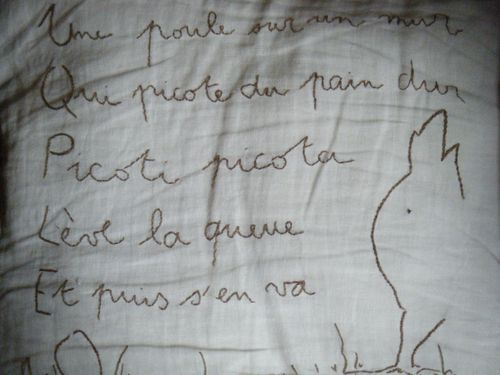 Une poule sur un mur
Qui picote du pain dur
Picoti picota
Lève la queue
Et puis s'en va